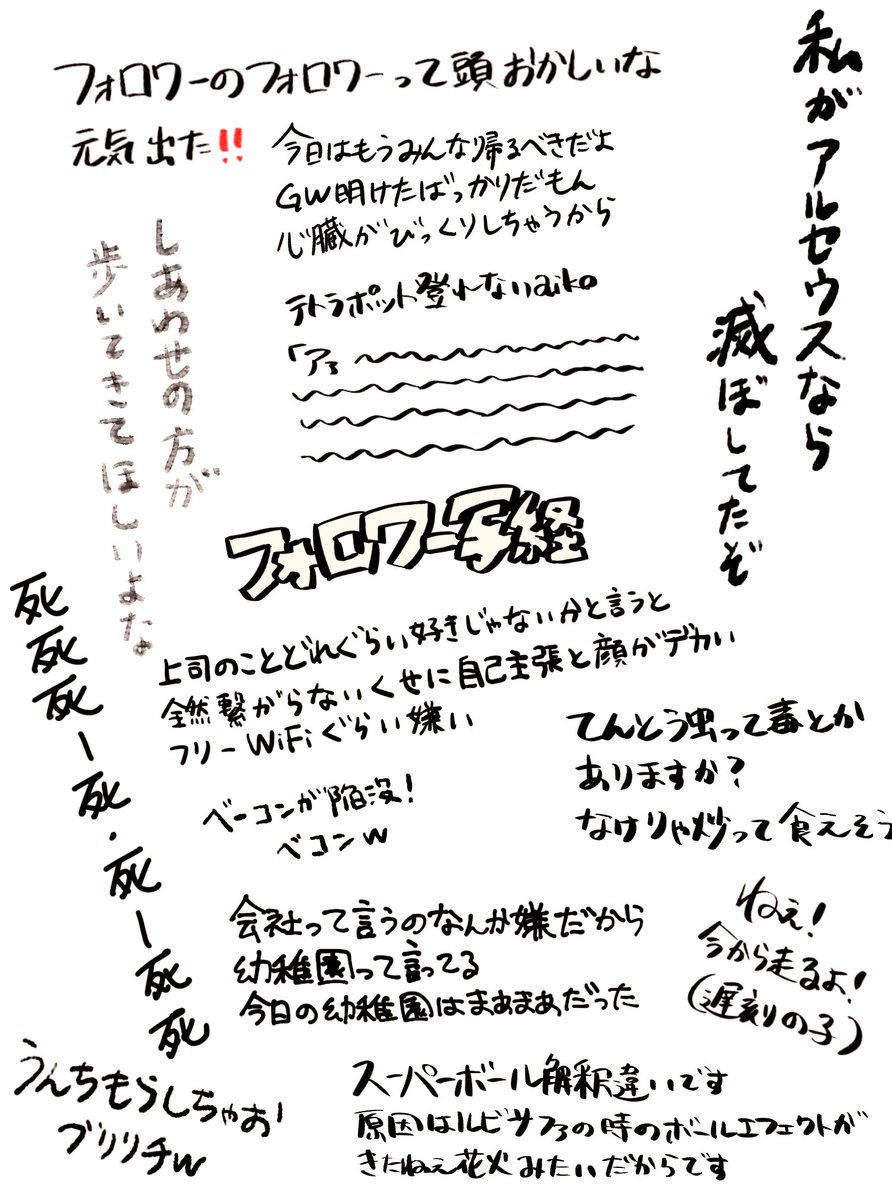 フォロワーのフォロワーって頭おかしいな
元気出た!!
今日はもうみんな帰るべきだよ
GW明けたばっかりだもん
心臓がびっくりしちゃうから
私がアルセウスなら
滅ぼしてたぞ
しあわせの方が
歩いてきてほしいよな
テトラポット登れないaiko
「アろ
フォロワー写経
死死死ー死・死ー死死
上司のことどれぐらい好きじゃないかと言うと
全然繋がらないくせに自己主張と顔がデカい
フリーWiFiぐらい嫌い
てんとう虫って毒とか
ありますか?
なけりゃ炒って食えそう
ベーコンが陥没!
ベコンw
会社って言うのなんか嫌だから
幼稚園って言ってる
今日の幼稚園はまあまあだった
ねぇ!
今から走るよ!
(遅刻の子)
うんちもらしちゃお!
ブリリチw
スーパーボール解釈違いです
原因はルビサファの時のボールエフェクトが
きたねえ花火みたいだからです